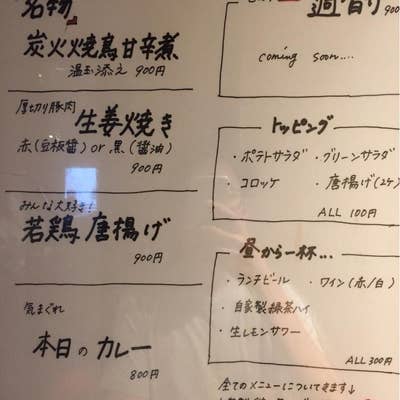 名物
炭火焼鳥甘辛煮
温玉添え 900円
厚切り豚肉
生姜焼き
赤(豆板醤)or 黒(醤油)
900円
みんな大好き!
若鶏 唐揚げ
900円
気まぐれ
本日の カレー
800円
週替り
900
coming soon....
トッピング
・ポテトサラダ ・グリーンサラダ
・コロッケ ・唐揚げ(2ケ)
ALL 100円
昼から一杯...
・ランチビール ・ワイン(赤/白)
・自家製緑茶ハイ
・生レモンサワー
ALL 300円
全てのメニューについてきます↓